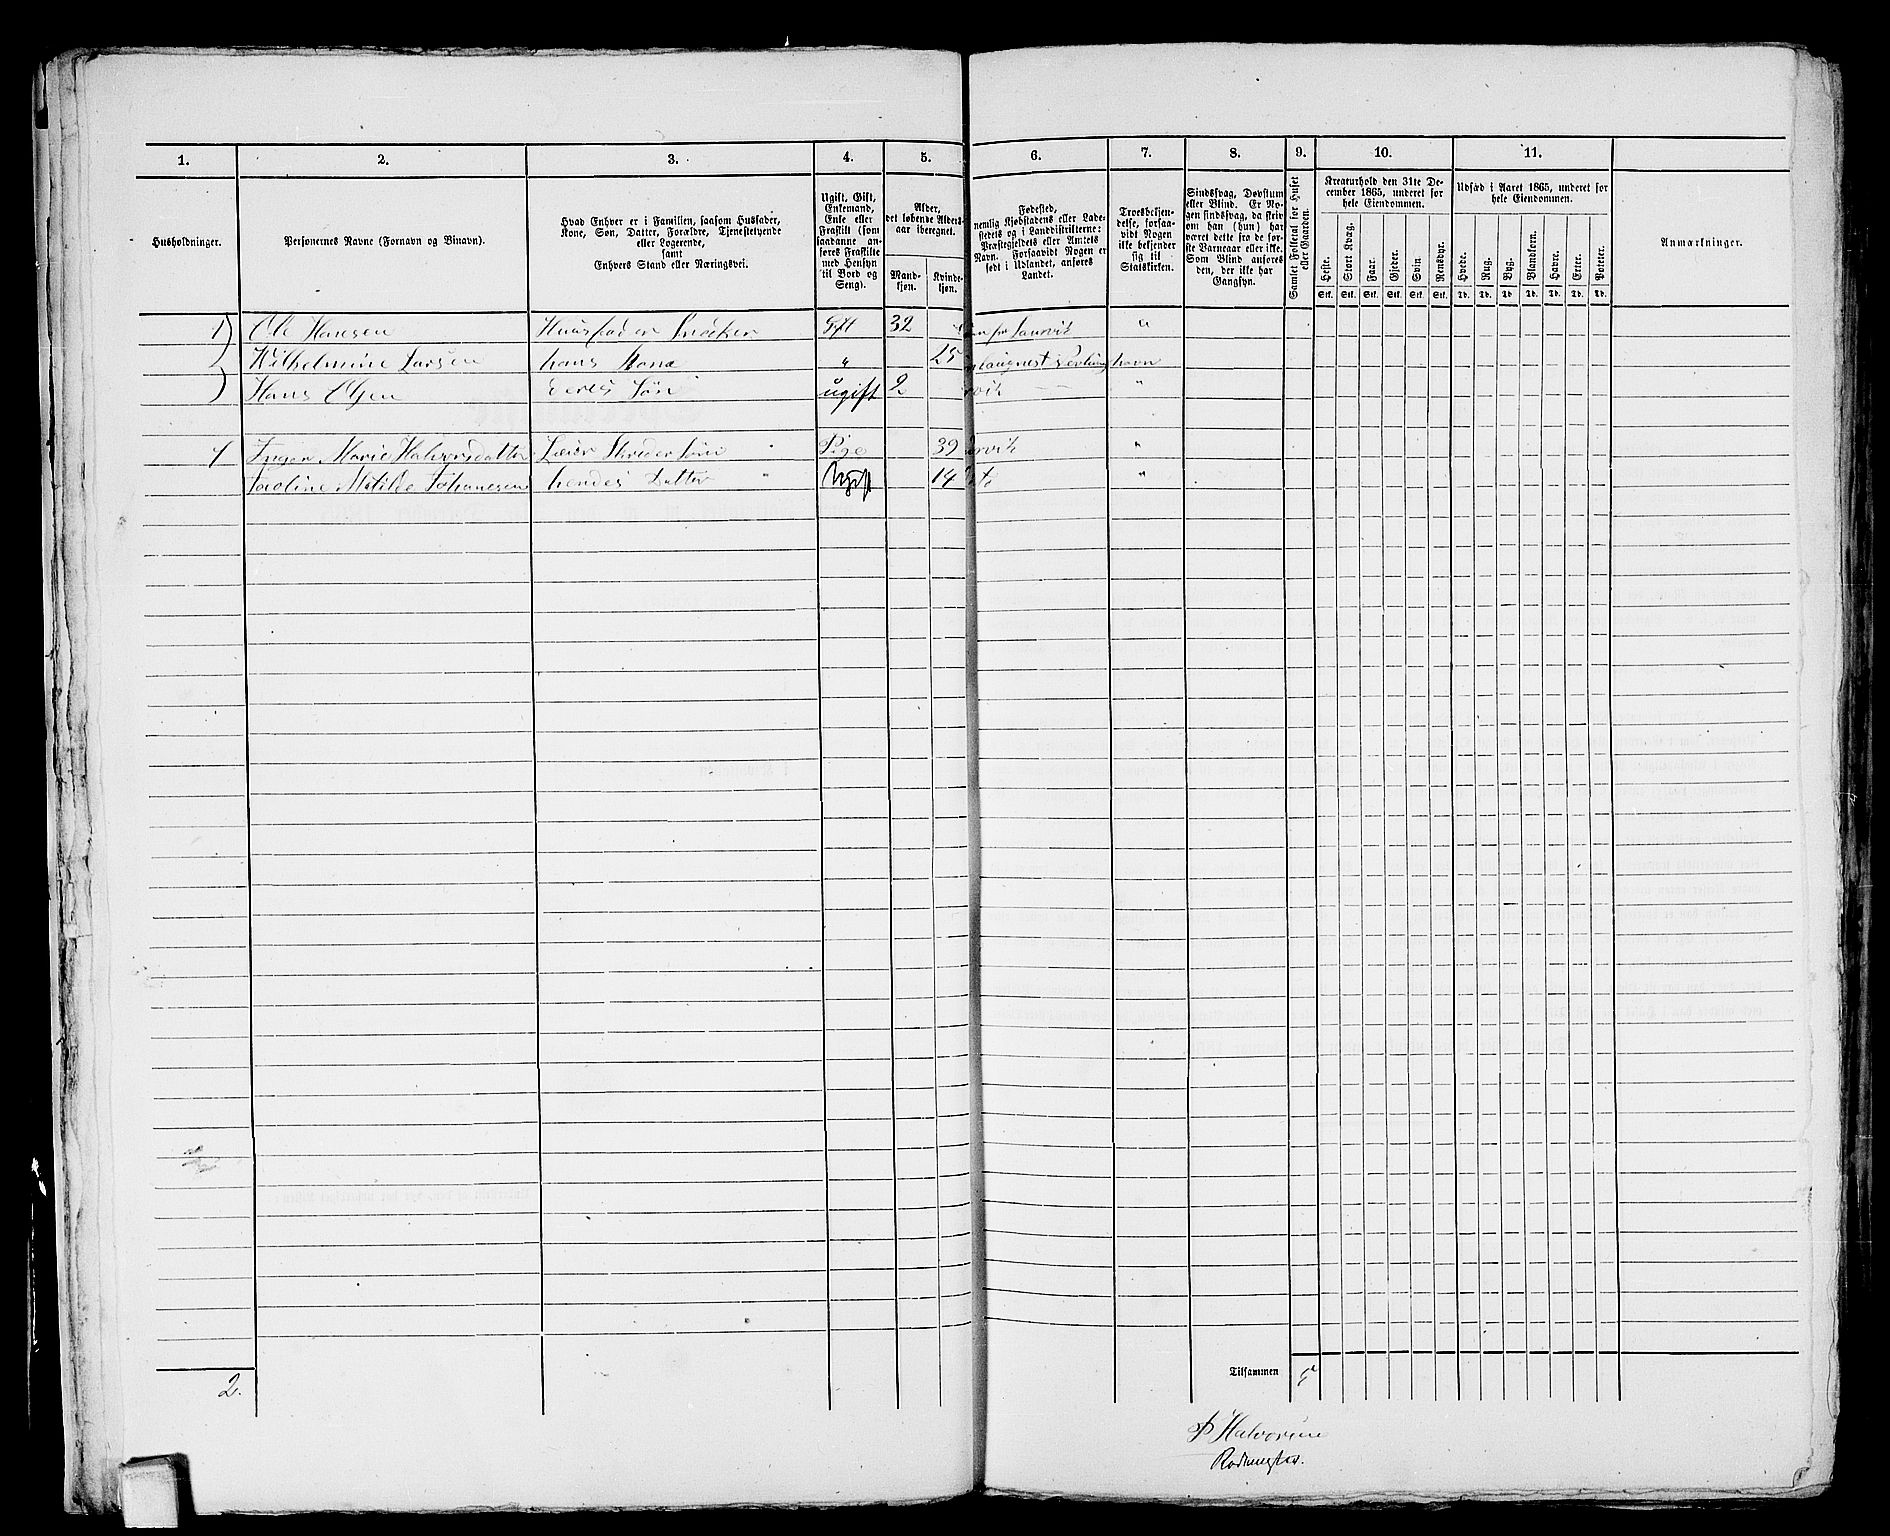 1. 2. 3. 4. 5. 6. 7. 8. 9. 10. 11.
Husholdninger.
Personernes Navne (Fornavn og Binavn).
Hvad Enhver er i Familien, saasom Husfader,
Kone, Søn, Datter, Forældre, Tjenestetyende
eller Logerende,
samt
Enhvers Stand eller Næringsvei.
Ugift, Gift,
Enkemand,
Enke eller
Fraskilt (som
saadanne an-
føres Fraskilte
med Hensyn
til Bord og
Seng).
Alder,
det løbende Alders-
aar iberegnet.
Mand-
kjøn.
Kvinde-
kjøn.
Fødested,
nemlig Kjøbstadens eller Lade-
stedets og i Landdistrikterne:
Præstegjeldets eller Amtets
Navn. Forsaavidt Nogen er
født i Udlandet, anføres
Landet.
Troesbekjen-
delse, forsaa-
vidt Nogen
ikke bekjender
sig til
Statskirken.
Sindssvag, Døvstum
eller Blind. Er No-
gen sindssvag, da skriv
om han (hun) har
været dette fra de før-
ste Barneaar eller ikke.
Som Blind anføres
den, der ikke har
Gangsyn.
Samlet Folketal for Huset
eller Gaarden.
Kreaturhold den 31te De-
cember 1865, underet for
hele Eiendommen.
Heste. Stort Kvæg. Faar. Gjeder. Svin. Rensdyr.
Stk. Stk. Stk. Stk. Stk. Stk.
Udsæd i Aaret 1865, underet for
hele Eiendommen.
Hvede. Rug. Byg. Blandkorn. Havre. Erter. Poteter.
Td. Td. Td. Td. Td. Td. Td.
Anmærkninger.
1) Ole Hansen Huusfader Snedker Gift 32 Laurvik "
Wilhelmine Larsen hans Kone " 25 havn
Hans Olsen deres Søn ugift 2 "
1 Inger Marie Halvorsdatter Leier Pige 39 "
Karoline Matilde Johanesen hendes Datter " Ugift 14 "
2. Tilsammen 5
P Halvorsen